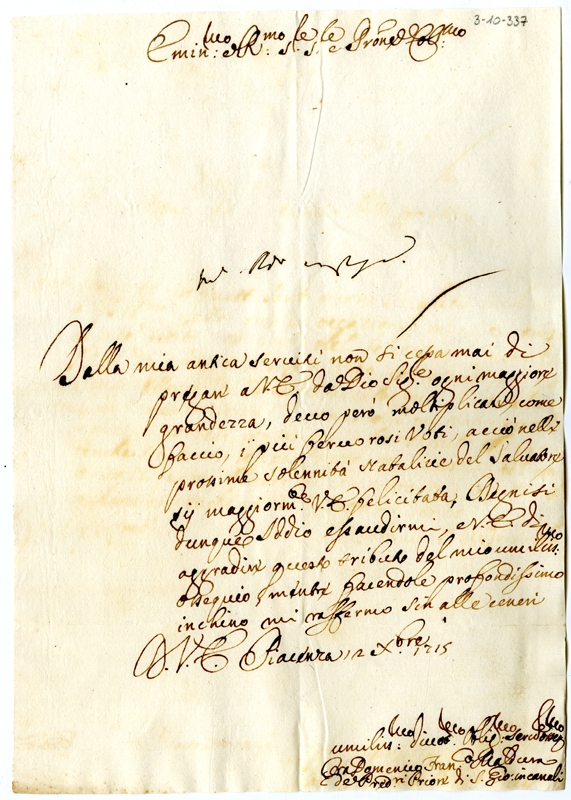 3-10-337
Emin:mo e R:mo S.re S.re e Pron
Dalla mia antica servitù non si cessa mai di
pregare a V.E. da Dio Sig.re ogni maggiore
grandezza, devo però moltiplicare, come
faccio, i più fervorosi Voti, acciò nelle
prossime solennità Natalicie del Salvatore
sij maggiorm.te V.E. felicitata, Degnisi
dunque Iddio essaudirmi, e V.E. di
aggradire questo tributo del mio umilis:mo
ossequio, mentre facendole profondissimo
inchino mi raffermo sin alle ceneri
D.V.E. Piacenza, 2 Xbre 1715
umilis:mo divot:mo Oblig:mo
Domenico Fran.co
de Pred.ri Priore di S. Gio: in canali